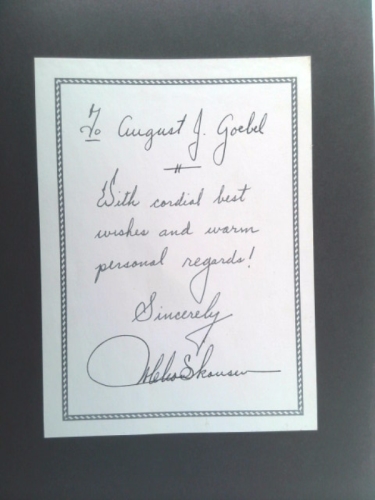 To August J. Goebel
With cordial best
wishes and warm
personal regards!
Sincerely
WCleonSkousen